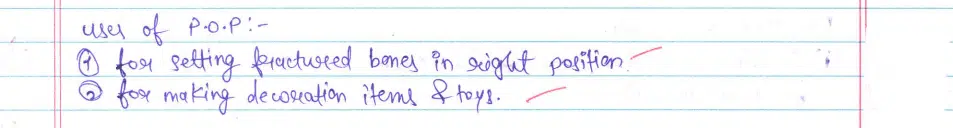 uses of P.O.P:-
① for setting fractured bones in right position.
② for making decoration items & toys.